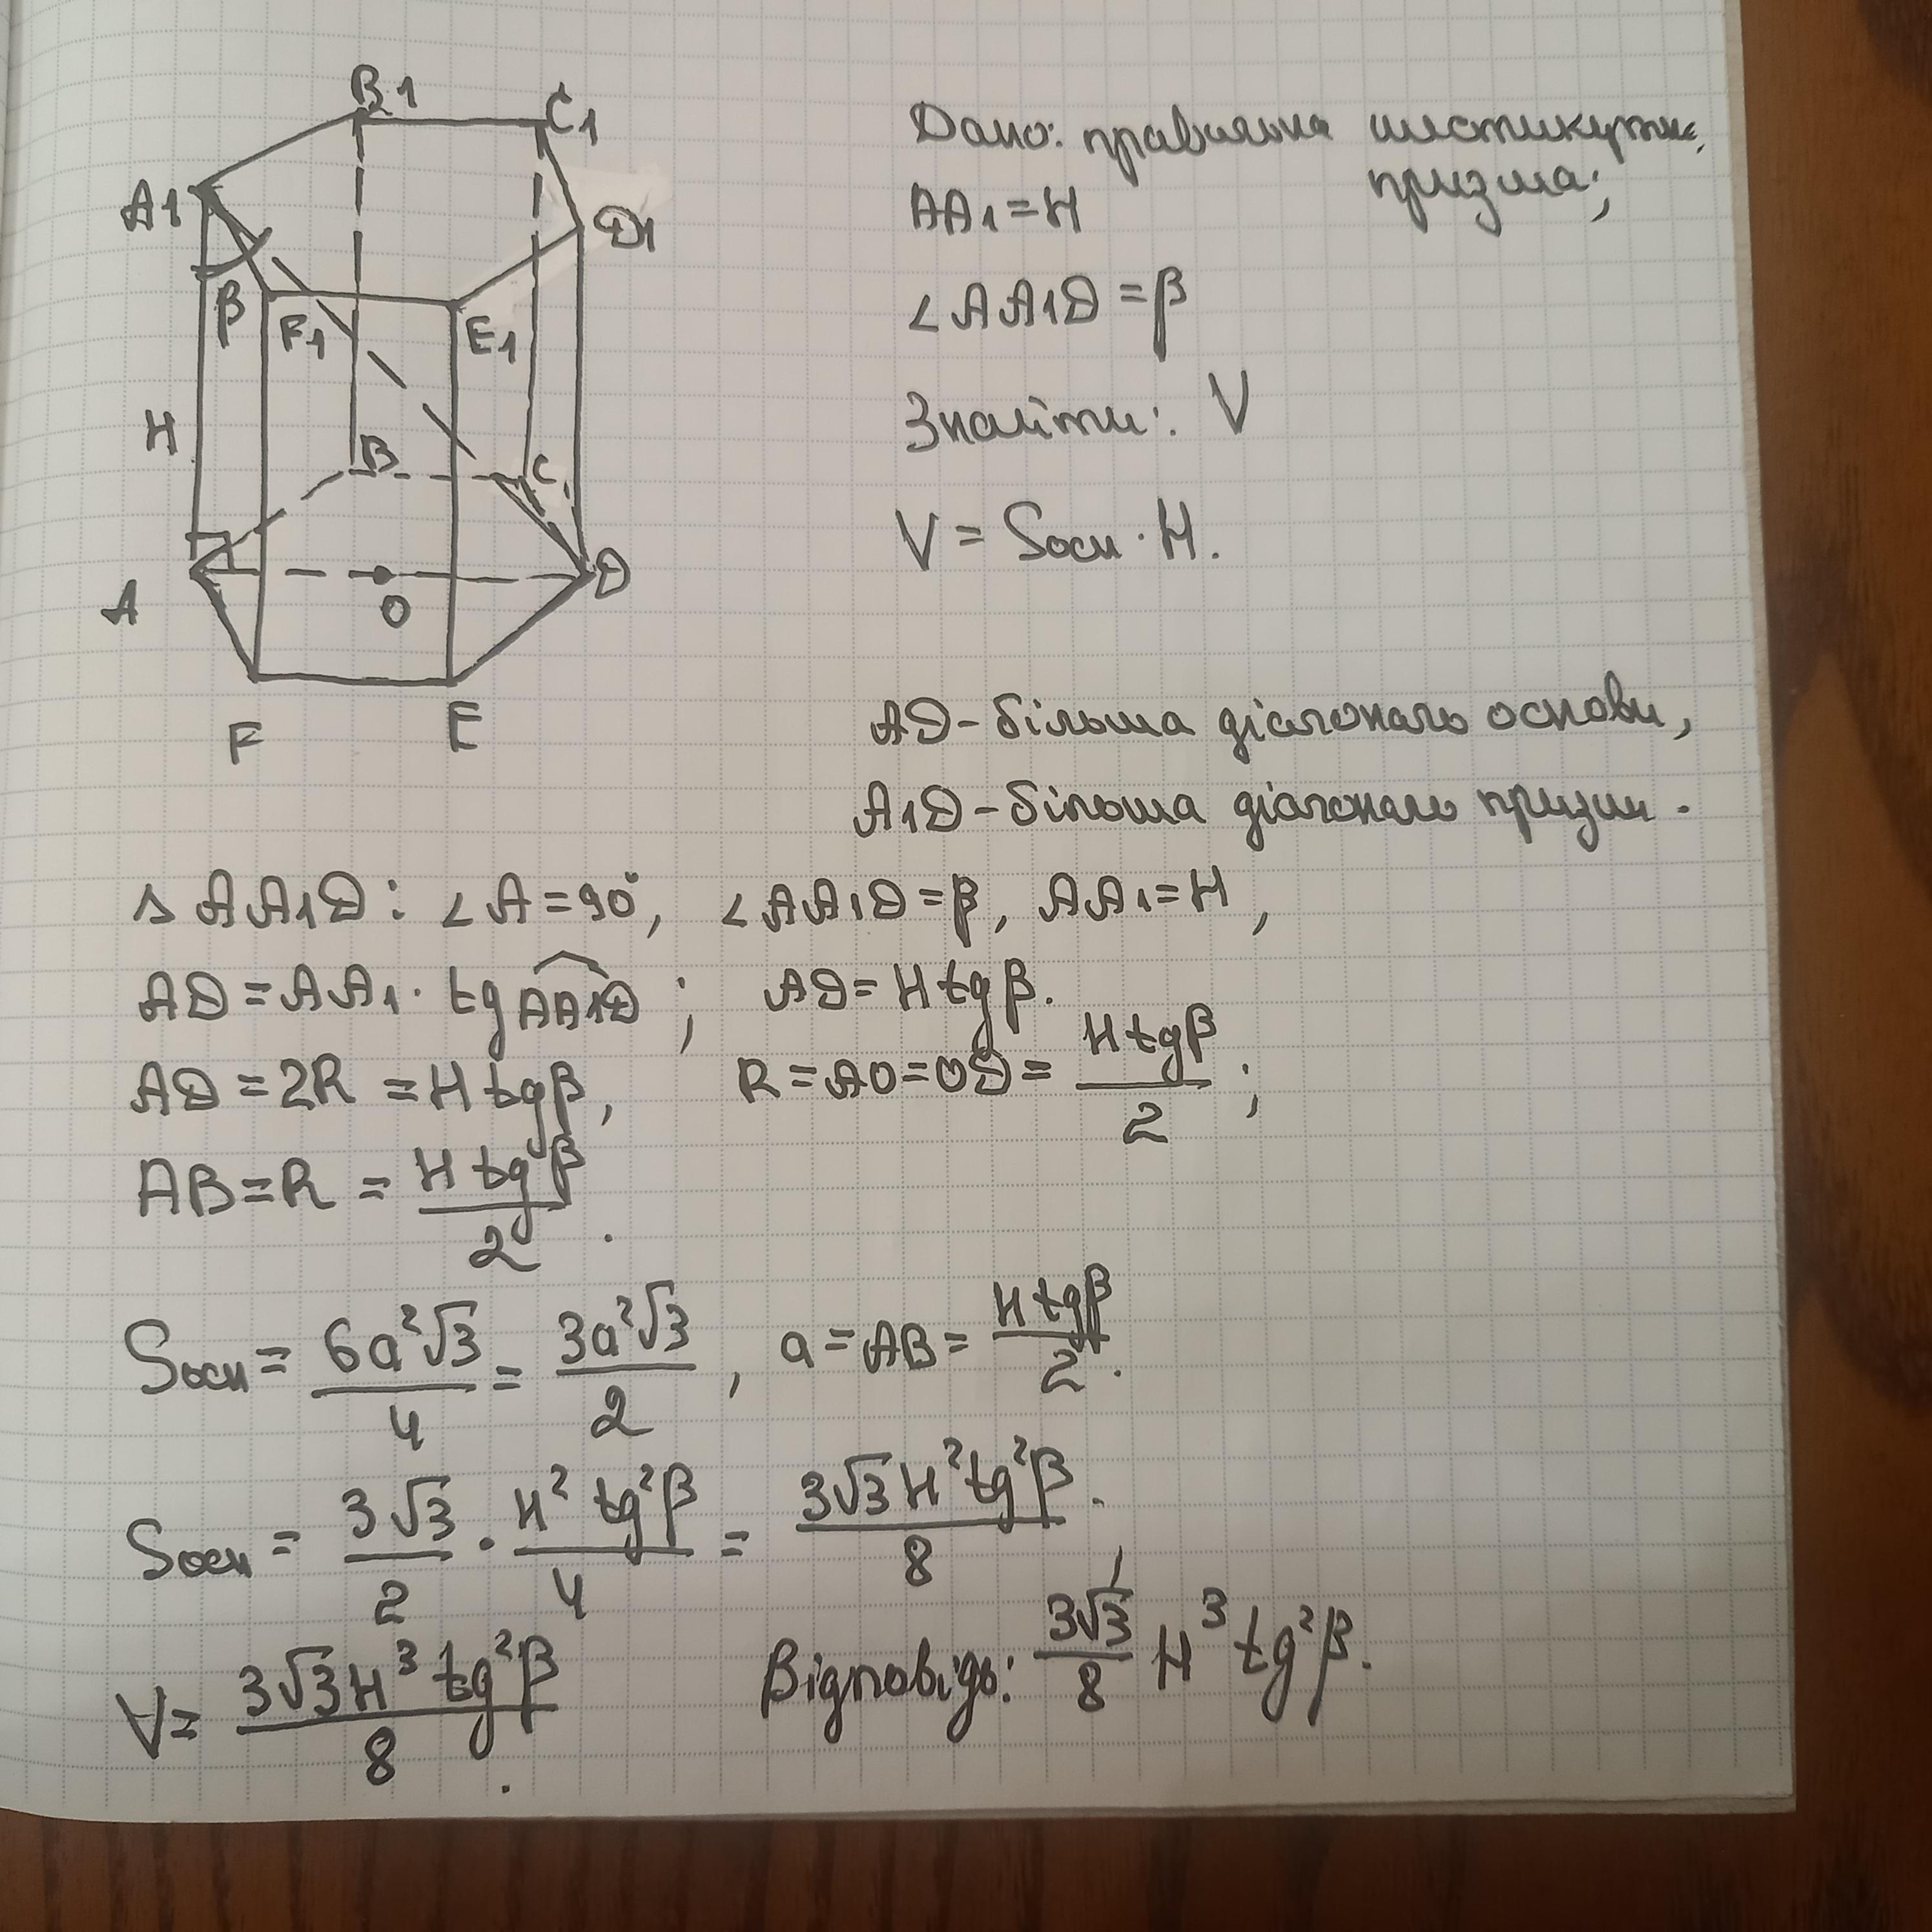 B1
C1
A1
D1
β
F1
E1
H
B
C
A
O
D
F
E
Дано: правильна шестикутна
призма;
AA1 = H
∠AA1D = β
Знайти: V
V = Sосн · H.
AD – більша діагональ основи,
A1D – більша діагональ призми.
△ AA1D: ∠A = 90°, ∠AA1D = β, AA1 = H,
AD = AA1 · tg AA1D; AD = H tg β.
AD = 2R = H tg β, R = AO = OD = H tg β / 2;
AB = R = H tg β / 2.
Sосн = 6a²√3 / 4 = 3a²√3 / 2, a = AB = H tg β / 2.
Sосн = 3√3 / 2 · H² tg²β / 4 = 3√3 H² tg²β / 8.
V = 3√3 H³ tg²β / 8. Відповідь: 3√3 / 8 H³ tg²β.